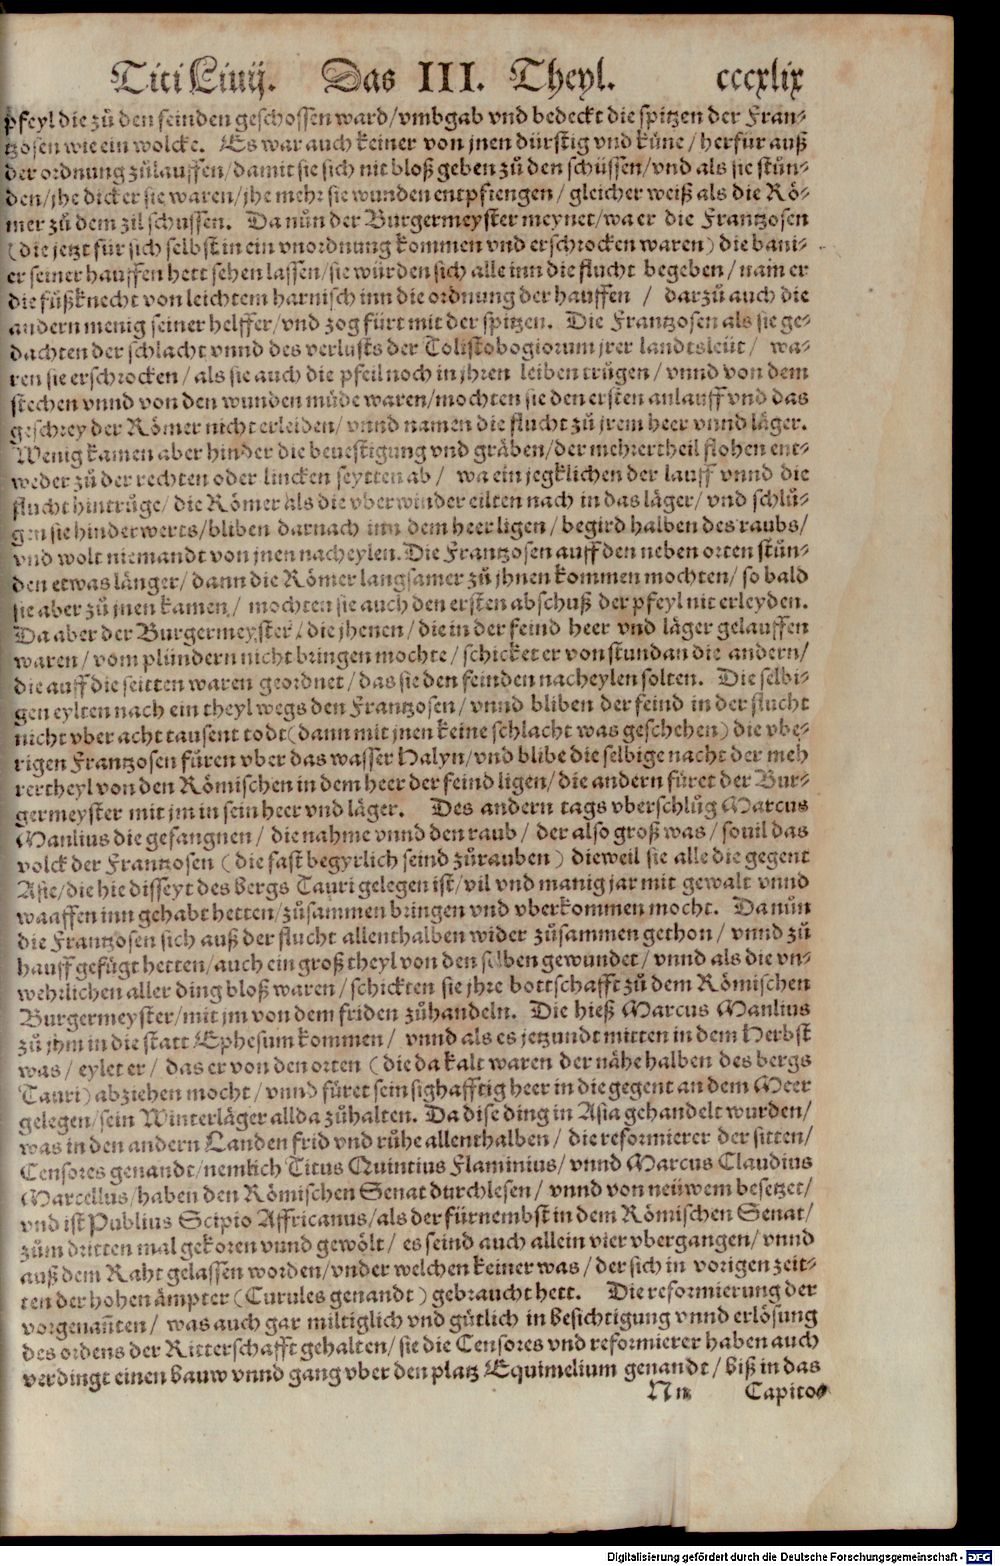 Titi Liuij. Das III. Theyl. cccxlix
pfeyl die zů den feinden geschossen ward/vmbgab vnd bedeckt die spitzen der Fran-
tzosen wie ein wolcke. Es war auch keiner von jnen dürstig vnd küne/herfür auß
der ordnung zůlauffen/damit sie sich nit bloß geben zů den schüssen/vnd als sie stůn-
den/jhe dicker sie waren/jhe mehr sie wunden entpfiengen/gleicher weiß als die Rö-
mer zů dem zil schussen. Da nůn der Burgermeyster meynet/wa er die Frantzosen
(die jetzt für sich selbst in ein vnordnung kommen vnd erschrocken waren) die bani-
er seiner hauffen hett sehen lassen/sie würden sich alle inn die flucht begeben/nam er
die füßknecht von leichtem harnisch inn die ordnung der hauffen / darzů auch die
andern menig seiner helffer/vnd zog fürt mit der spitzen. Die Frantzosen als sie ge-
dachten der schlacht vnnd des verlusts der Tolistobogiorum jrer landtsleüt / wa-
ren sie erschrocken/als sie auch die pfeil noch in jhren leiben trůgen/vnnd von dem
stechen vnnd von den wunden müde waren/mochten sie den ersten anlauff vnd das
geschrey der Römer nicht erleiden/vnnd namen die flucht zů jrem heer vnnd läger.
Wenig kamen aber hinder die beuestigung vnd gräben/der mehrertheil flohen ent-
weder zů der rechten oder lincken seytten ab/ wa ein jegklichen der lauff vnnd die
flucht hintrůge/die Römer als die vberwinder eilten nach in das läger/vnd schlů-
gen sie hinderwerts/bliben darnach inn dem heer ligen/begird halben des raubs/
vnd wolt niemandt von jnen nacheylen. Die Frantzosen auff den neben orten stůn-
den etwas länger/dann die Römer langsamer zů jhnen kommen mochten/so bald
sie aber zů jnen kamen/ mochten sie auch den ersten abschuß der pfeyl nit erleyden.
Da aber der Burgermeyster/die jhenen/die in der feind heer vnd läger gelauffen
waren/vom plündern nicht bringen mochte/schicket er von stundan die andern/
die auff die seitten waren geordnet/das sie den feinden nacheylen solten. Die selbi-
gen eylten nach ein theyl wegs den Frantzosen/vnnd bliben der feind in der flucht
nicht vber acht tausent todt(dann mit jnen keine schlacht was geschehen) die vbe-
rigen Frantzosen fůren vber das wasser Halyn/vnd blibe die selbige nacht der meh
rertheyl von den Römischen in dem heer der feind ligen/die andern fůret der Bur-
germeyster mit jm in sein heer vnd läger. Des andern tags vberschlůg Marcus
Manlius die gefangnen/die nahme vnnd den raub/der also groß was/souil das
volck der Frantzosen (die fast begyrlich seind zůrauben) dieweil sie alle die gegent
Asie/die hie disseyt des bergs Tauri gelegen ist/vil vnd manig jar mit gewalt vnnd
waaffen inn gehabt hetten/zůsammen bringen vnd vberkommen mocht. Da nůn
die Frantzosen sich auß der flucht allenthalben wider zůsammen gethon/vnnd zů
hauff gefügt hetten/auch ein groß theyl von den selben gewundet/vnnd als die vn-
wehrlichen aller ding bloß waren/schickten sie jhre bottschafft zů dem Römischen
Burgermeyster/mit jm von dem friden zůhandeln. Die hieß Marcus Manlius
zů jhm in die statt Ephesum kommen/ vnnd als es jetzundt mitten in dem Herbst
was/eylet er/das er von den orten (die da kalt waren der nähe halben des bergs
Tauri) abziehen mocht/vnnd fůret sein sighafftig heer in die gegent an dem Meer
gelegen/sein Winterläger allda zůhalten. Da dise ding in Asia gehandelt wurden/
was in den andern Landen frid vnd růhe allenthalben/die reformierer der sitten/
Censores genandt/nemlich Titus Quintius Flaminius/vnnd Marcus Claudius
Marcellus/haben den Römischen Senat durchlesen/vnnd von neüwem besetzet/
vnd ist Publius Scipio Affricanus/als der fürnembst in dem Römischen Senat/
zům dritten mal gekoren vnnd gewölt/es seind auch allein vier vbergangen/vnnd
auß dem Raht gelassen worden/vnder welchen keiner was/der sich in vorigen zeit-
ten der hohen ämpter (Curules genandt) gebraucht hett. Die reformierung der
vorgenañten/ was auch gar miltiglich vnd gütlich in besichtigung vnnd erlösung
des ordens der Ritterschafft gehalten/sie die Censores vnd reformierer haben auch
verdingt einen bauw vnnd gang vber den platz Equimelium genandt/biß in das
Capito-
Digitalisierung gefördert durch die Deutsche Forschungsgemeinschaft - DFG